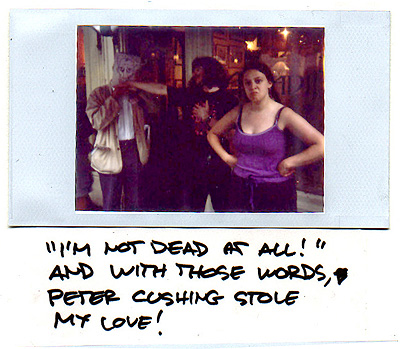 "I'M NOT DEAD AT ALL!"
AND WITH THOSE WORDS,
PETER CUSHING STOLE
MY LOVE!